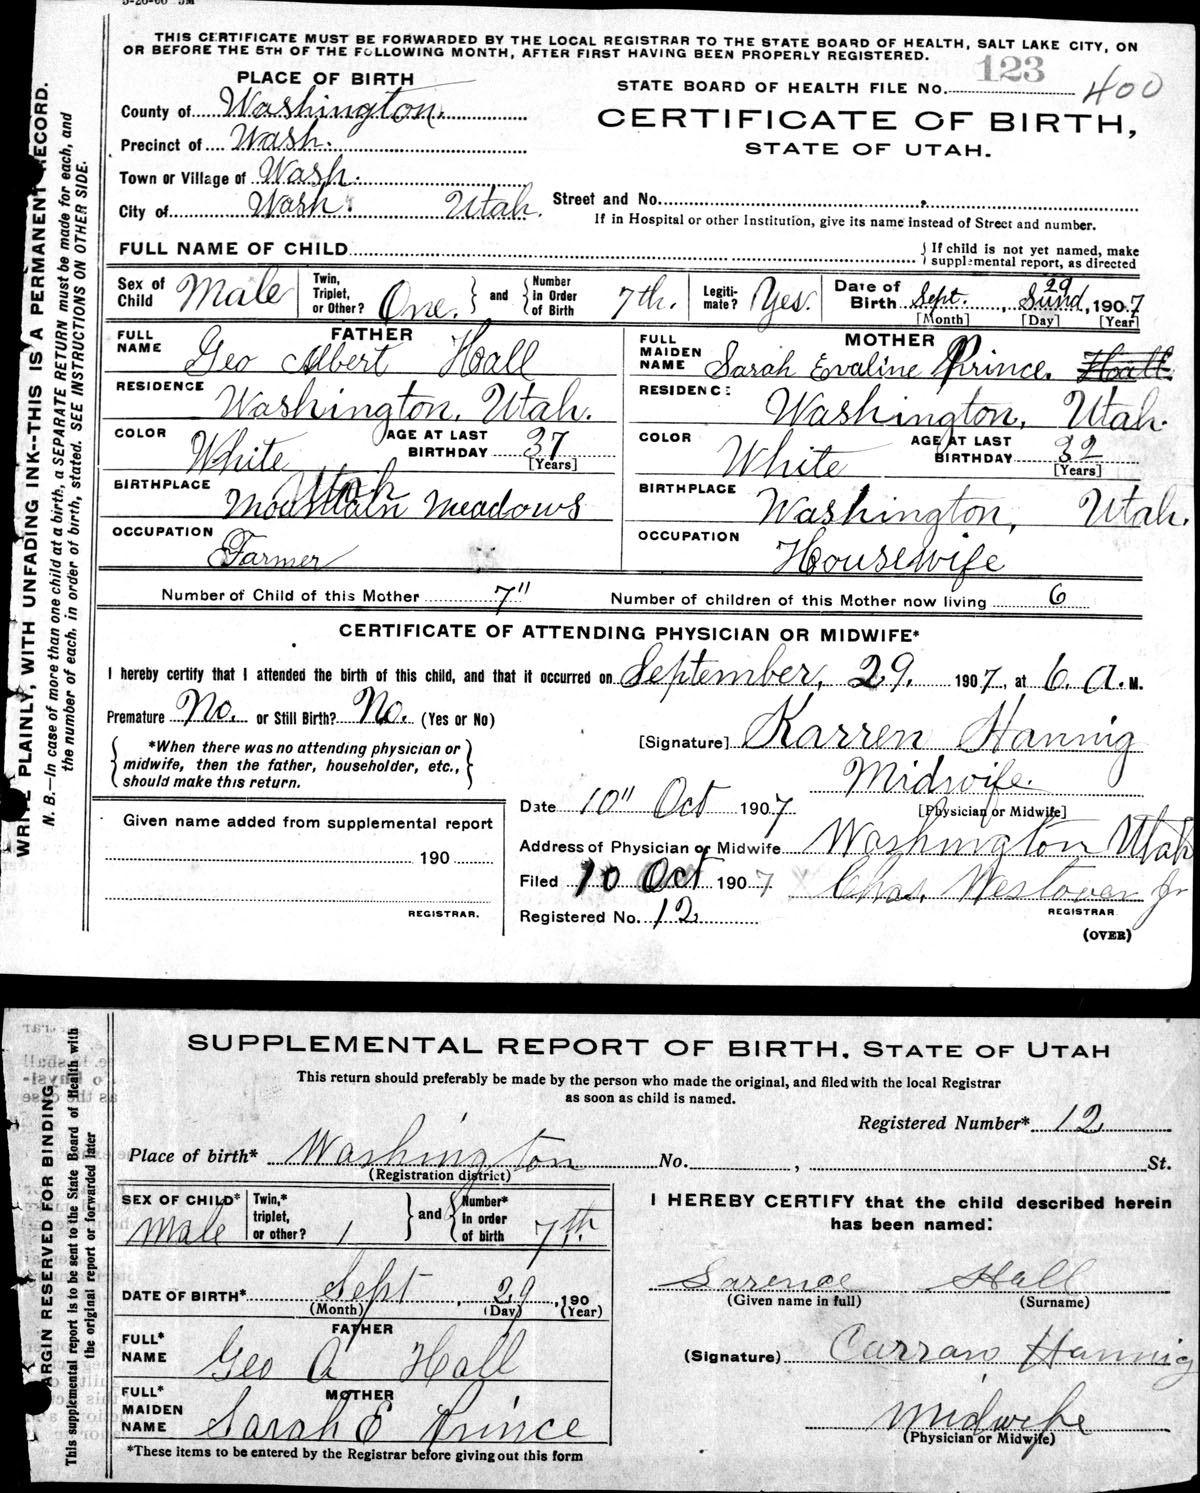 5-26-06 5M
THIS CERTIFICATE MUST BE FORWARDED BY THE LOCAL REGISTRAR TO THE STATE BOARD OF HEALTH, SALT LAKE CITY, ON
OR BEFORE THE 5TH OF THE FOLLOWING MONTH, AFTER FIRST HAVING BEEN PROPERLY REGISTERED.
WRITE PLAINLY, WITH UNFADING INK--THIS IS A PERMANENT RECORD.
N. B.—In case of more than one child at a birth, a SEPARATE RETURN must be made for each, and
the number of each, in order of birth, stated. SEE INSTRUCTIONS ON OTHER SIDE.
PLACE OF BIRTH
County of Washington.
Precinct of Wash.
Town or Village of Wash.
City of Wash. Utah.
123
STATE BOARD OF HEALTH FILE No. 400
CERTIFICATE OF BIRTH,
STATE OF UTAH.
Street and No.
If in Hospital or other Institution, give its name instead of Street and number.
FULL NAME OF CHILD
If child is not yet named, make
supplemental report, as directed
Sex of Child Male
Twin, Triplet, or Other? One. and Number in Order of Birth 7th.
Legitimate? Yes.
Date of Birth Sept. 29 Sund, 1907
[Month] [Day] [Year]
FATHER
FULL NAME Geo Albert Hall
RESIDENCE Washington, Utah.
COLOR White AGE AT LAST BIRTHDAY 37 [Years]
BIRTHPLACE Utah
Mountain Meadows
OCCUPATION Farmer
MOTHER
FULL MAIDEN NAME Sarah Evaline Prince. Hall
RESIDENCE Washington, Utah.
COLOR White AGE AT LAST BIRTHDAY 32 [Years]
BIRTHPLACE Washington, Utah.
OCCUPATION Housewife
Number of Child of this Mother 7" Number of children of this Mother now living 6
CERTIFICATE OF ATTENDING PHYSICIAN OR MIDWIFE*
I hereby certify that I attended the birth of this child, and that it occurred on September, 29. 1907, at 6. A. M.
Premature No. or Still Birth? No. (Yes or No)
*When there was no attending physician or
midwife, then the father, householder, etc.,
should make this return.
[Signature] Karren Hannig
Midwife.
[Physician or Midwife]
Date 10" Oct 1907.
Address of Physician or Midwife Washington Utah
Filed 10 Oct 1907 Chas. Westover Jr
REGISTRAR
Registered No. 12
(OVER)
Given name added from supplemental report
190
REGISTRAR.
MARGIN RESERVED FOR BINDING
This supplemental report is to be sent to the State Board of Health with
the original report or forwarded later
SUPPLEMENTAL REPORT OF BIRTH, STATE OF UTAH
This return should preferably be made by the person who made the original, and filed with the local Registrar
as soon as child is named.
Registered Number* 12
Place of birth* Washington No. , St.
(Registration district)
SEX OF CHILD* Male
Twin,* triplet, or other? 1 and Number* in order of birth 7th.
DATE OF BIRTH* Sept 29, 190
(Month) (Day) (Year)
FATHER
FULL* NAME Geo A Hall
MOTHER
FULL* MAIDEN NAME Sarah E Prince
*These items to be entered by the Registrar before giving out this form
I HEREBY CERTIFY that the child described herein
has been named:
Larence Hall
(Given name in full) (Surname)
(Signature) Carran Hannig
Midwife
(Physician or Midwife)